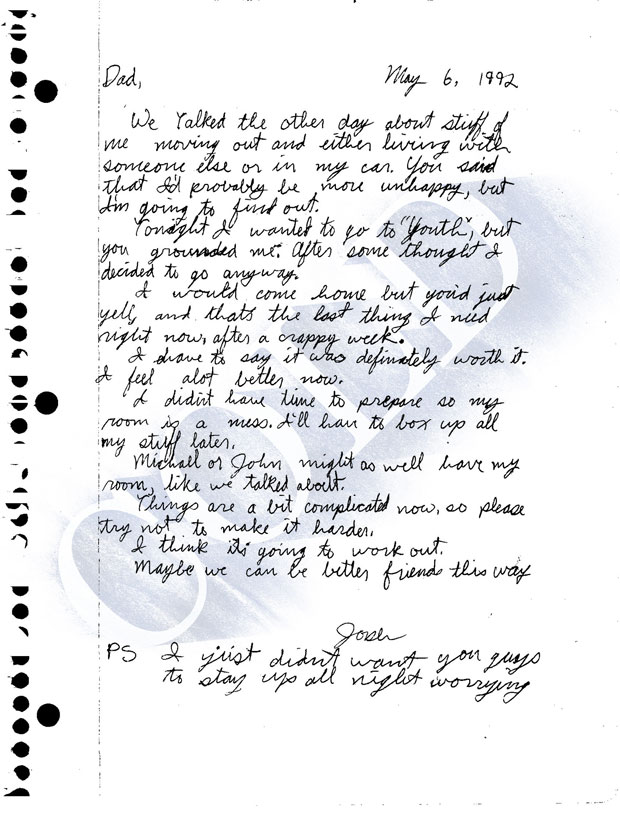 Dad, May 6, 1992
We Talked the other day about stuff of
me moving out and either living with
someone else or in my car. You said
that I'd provably be more unhappy, but
I'm going to find out.
Tonight I wanted to go to "Youth", but
you grounded me. After some thought I
decided to go anyway.
I would come home but you'd just
yell, and thats the last thing I need
right now, after a crappy week.
I have to say it was definately worth it.
I feel alot better now.
I didn't have time to prepare so my
room is a mess. I'll have to box up all
my stuff later.
Michael or John might as well have my
room, like we talked about.
Things are a bit complicated now, so please
try not to make it harder.
I think it's going to work out.
Maybe we can be better friends this way
Josh
PS I just didn't want you guys
to stay up all night worrying
COLD